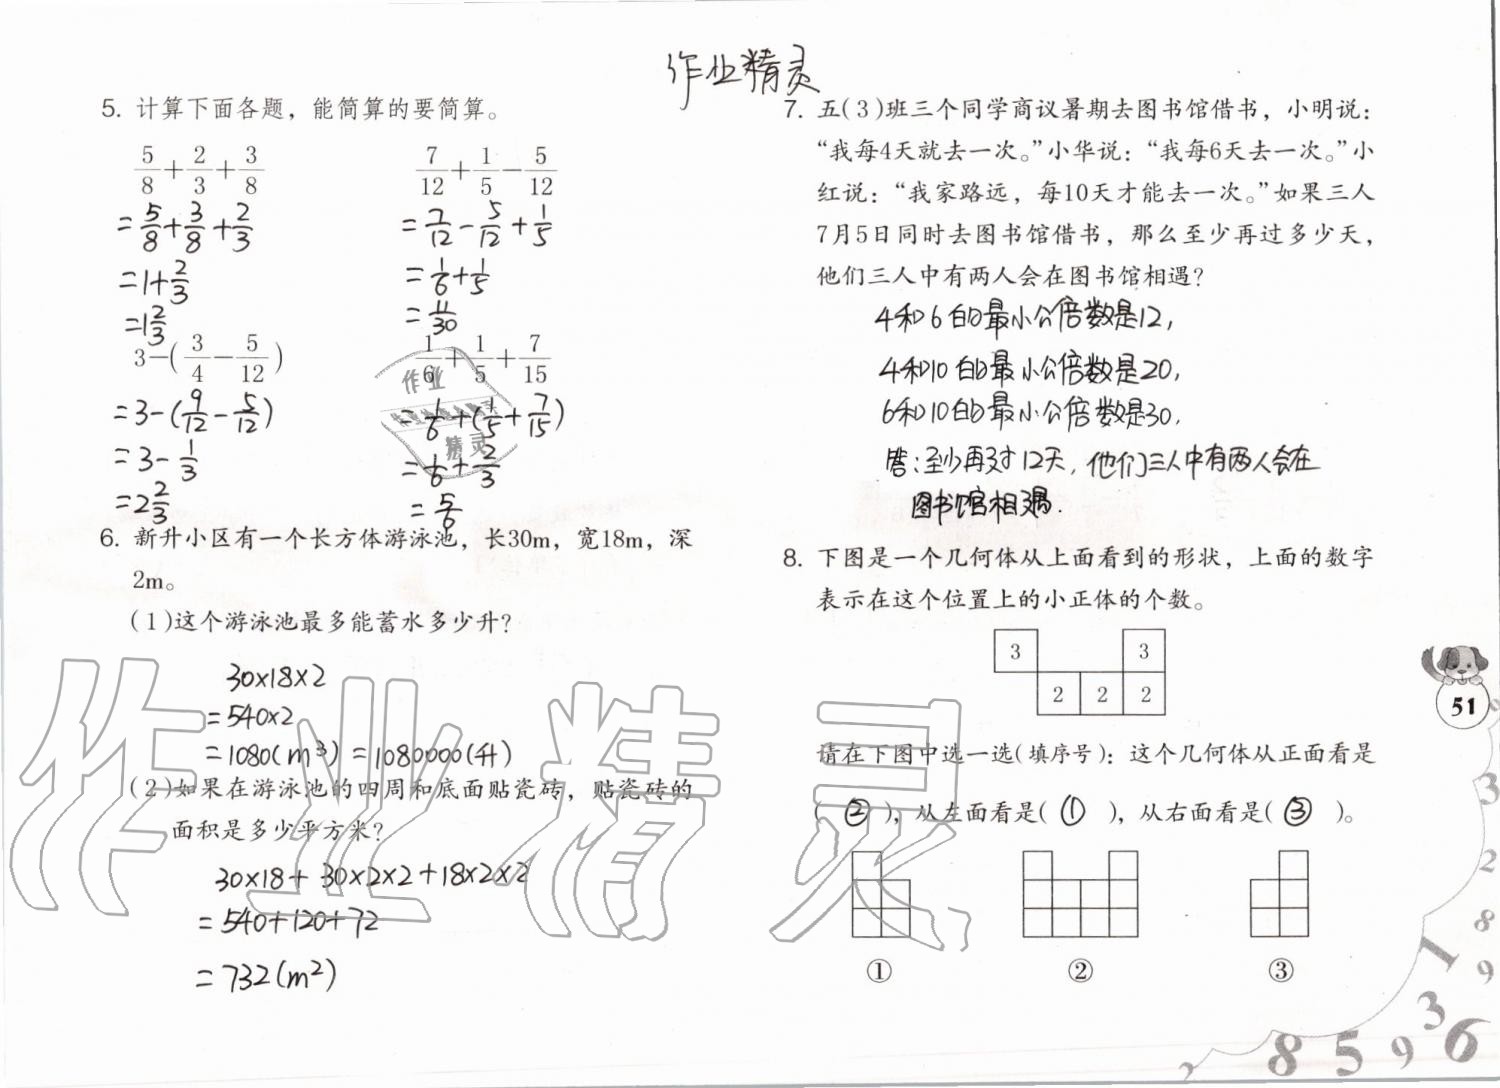 作业精灵
5. 计算下面各题，能简算的要简算。
5/8+2/3+3/8
=5/8+3/8+2/3
=1+2/3
=1 2/3
7/12+1/5-5/12
=7/12-5/12+1/5
=1/6+1/5
=11/30
3-(3/4-5/12)
=3-(9/12-5/12)
=3-1/3
=2 2/3
1/6+1/5+7/15
=1/6+(1/5+7/15)
=1/6+2/3
=5/6
作业
精灵
6. 新升小区有一个长方体游泳池，长30m，宽18m，深
2m。
(1)这个游泳池最多能蓄水多少升？
30×18×2
=540×2
=1080(m³)=1080000(升)
(2)如果在游泳池的四周和底面贴瓷砖，贴瓷砖的
面积是多少平方米？
30×18+30×2×2+18×2×2
=540+120+72
=732(m²)
7. 五(3)班三个同学商议暑期去图书馆借书，小明说：
“我每4天就去一次。”小华说：“我每6天去一次。”小
红说：“我家路远，每10天才能去一次。”如果三人
7月5日同时去图书馆借书，那么至少再过多少天，
他们三人中有两人会在图书馆相遇？
4和6的最小公倍数是12，
4和10的最小公倍数是20，
6和10的最小公倍数是30，
答：至少再过12天，他们三人中有两人会在
图书馆相遇.
8. 下图是一个几何体从上面看到的形状，上面的数字
表示在这个位置上的小正体的个数。
3 3
2 2 2
请在下图中选一选(填序号)：这个几何体从正面看是
(②)，从左面看是(①)，从右面看是(③)。
① ② ③
51
作业精灵
3
2
8
9
1
3
6
8 5 9